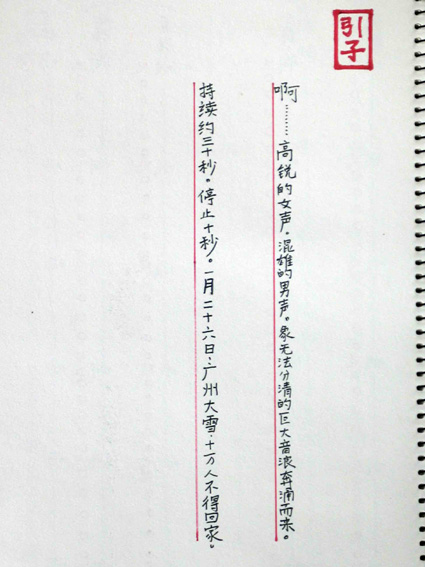 引子
啊……高锐的女声。混雄的男声。象无法分清的巨大音浪奔涌而来。
持续约三十秒。停止十秒。一月二十六日。广州大雪。十万人不得回家。